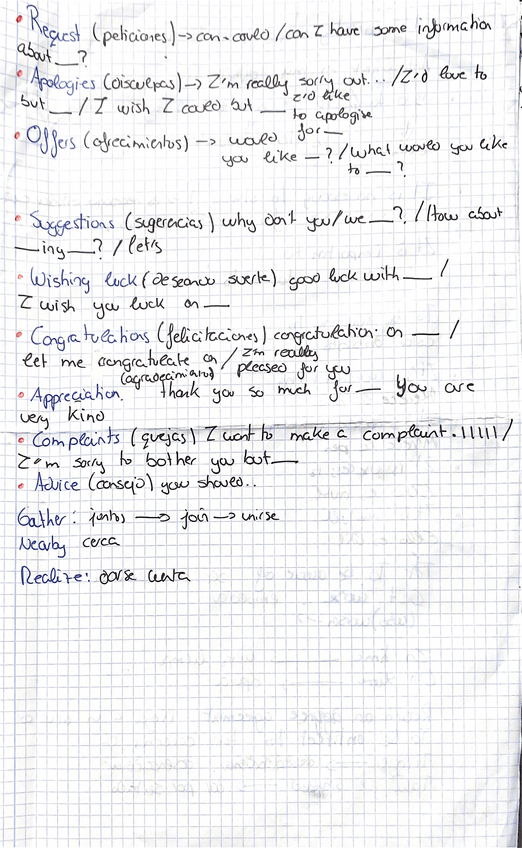 • Request (peticiones) → can-could / can I have some information
about __?
• Apologies (disculpas) → I'm really sorry out... / I'd love to
but __ / I wish I could but __ I'd like
to apologise
for __
• Offers (ofrecimientos) → would
you like __? / What would you like
to __?
• Suggestions (sugerencias) why don't you/we __? / How about
__ing __? / let's
• Wishing luck (deseando suerte) good luck with __ /
I wish you luck on __
• Congratulations (felicitaciones) congratulation on __ /
let me congratulate on / I'm really
pleased for you
• Appreciation (agradecimiento) thank you so much for __ You are
very kind
• Complaints (quejas) I want to make a complaint.11111/
I'm sorry to bother you but __
• Advice (consejo) you should..
Gather: juntos → join → unirse
Nearby cerca
Realize: darse cuenta